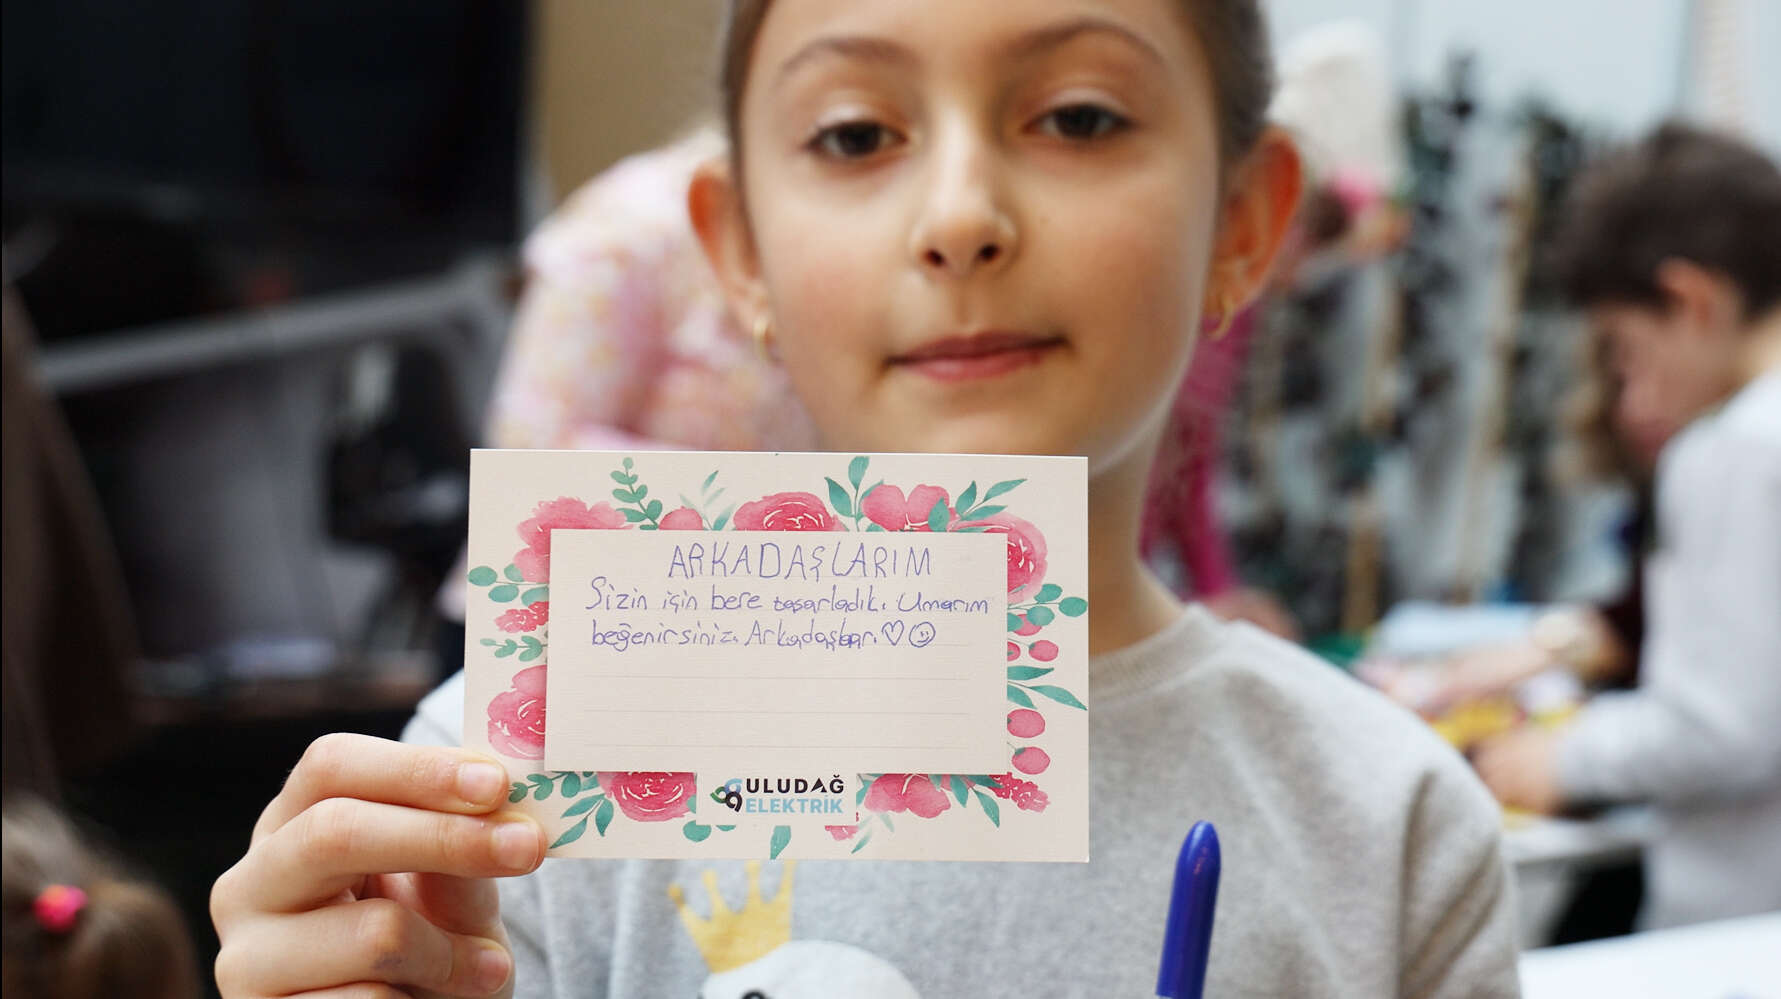 ARKADAŞLARIM
Sizin için bere tasarladık. Umarım
beğenirsiniz. Arkadaşlar. ♡☺
ULUDAĞ
ELEKTRİK